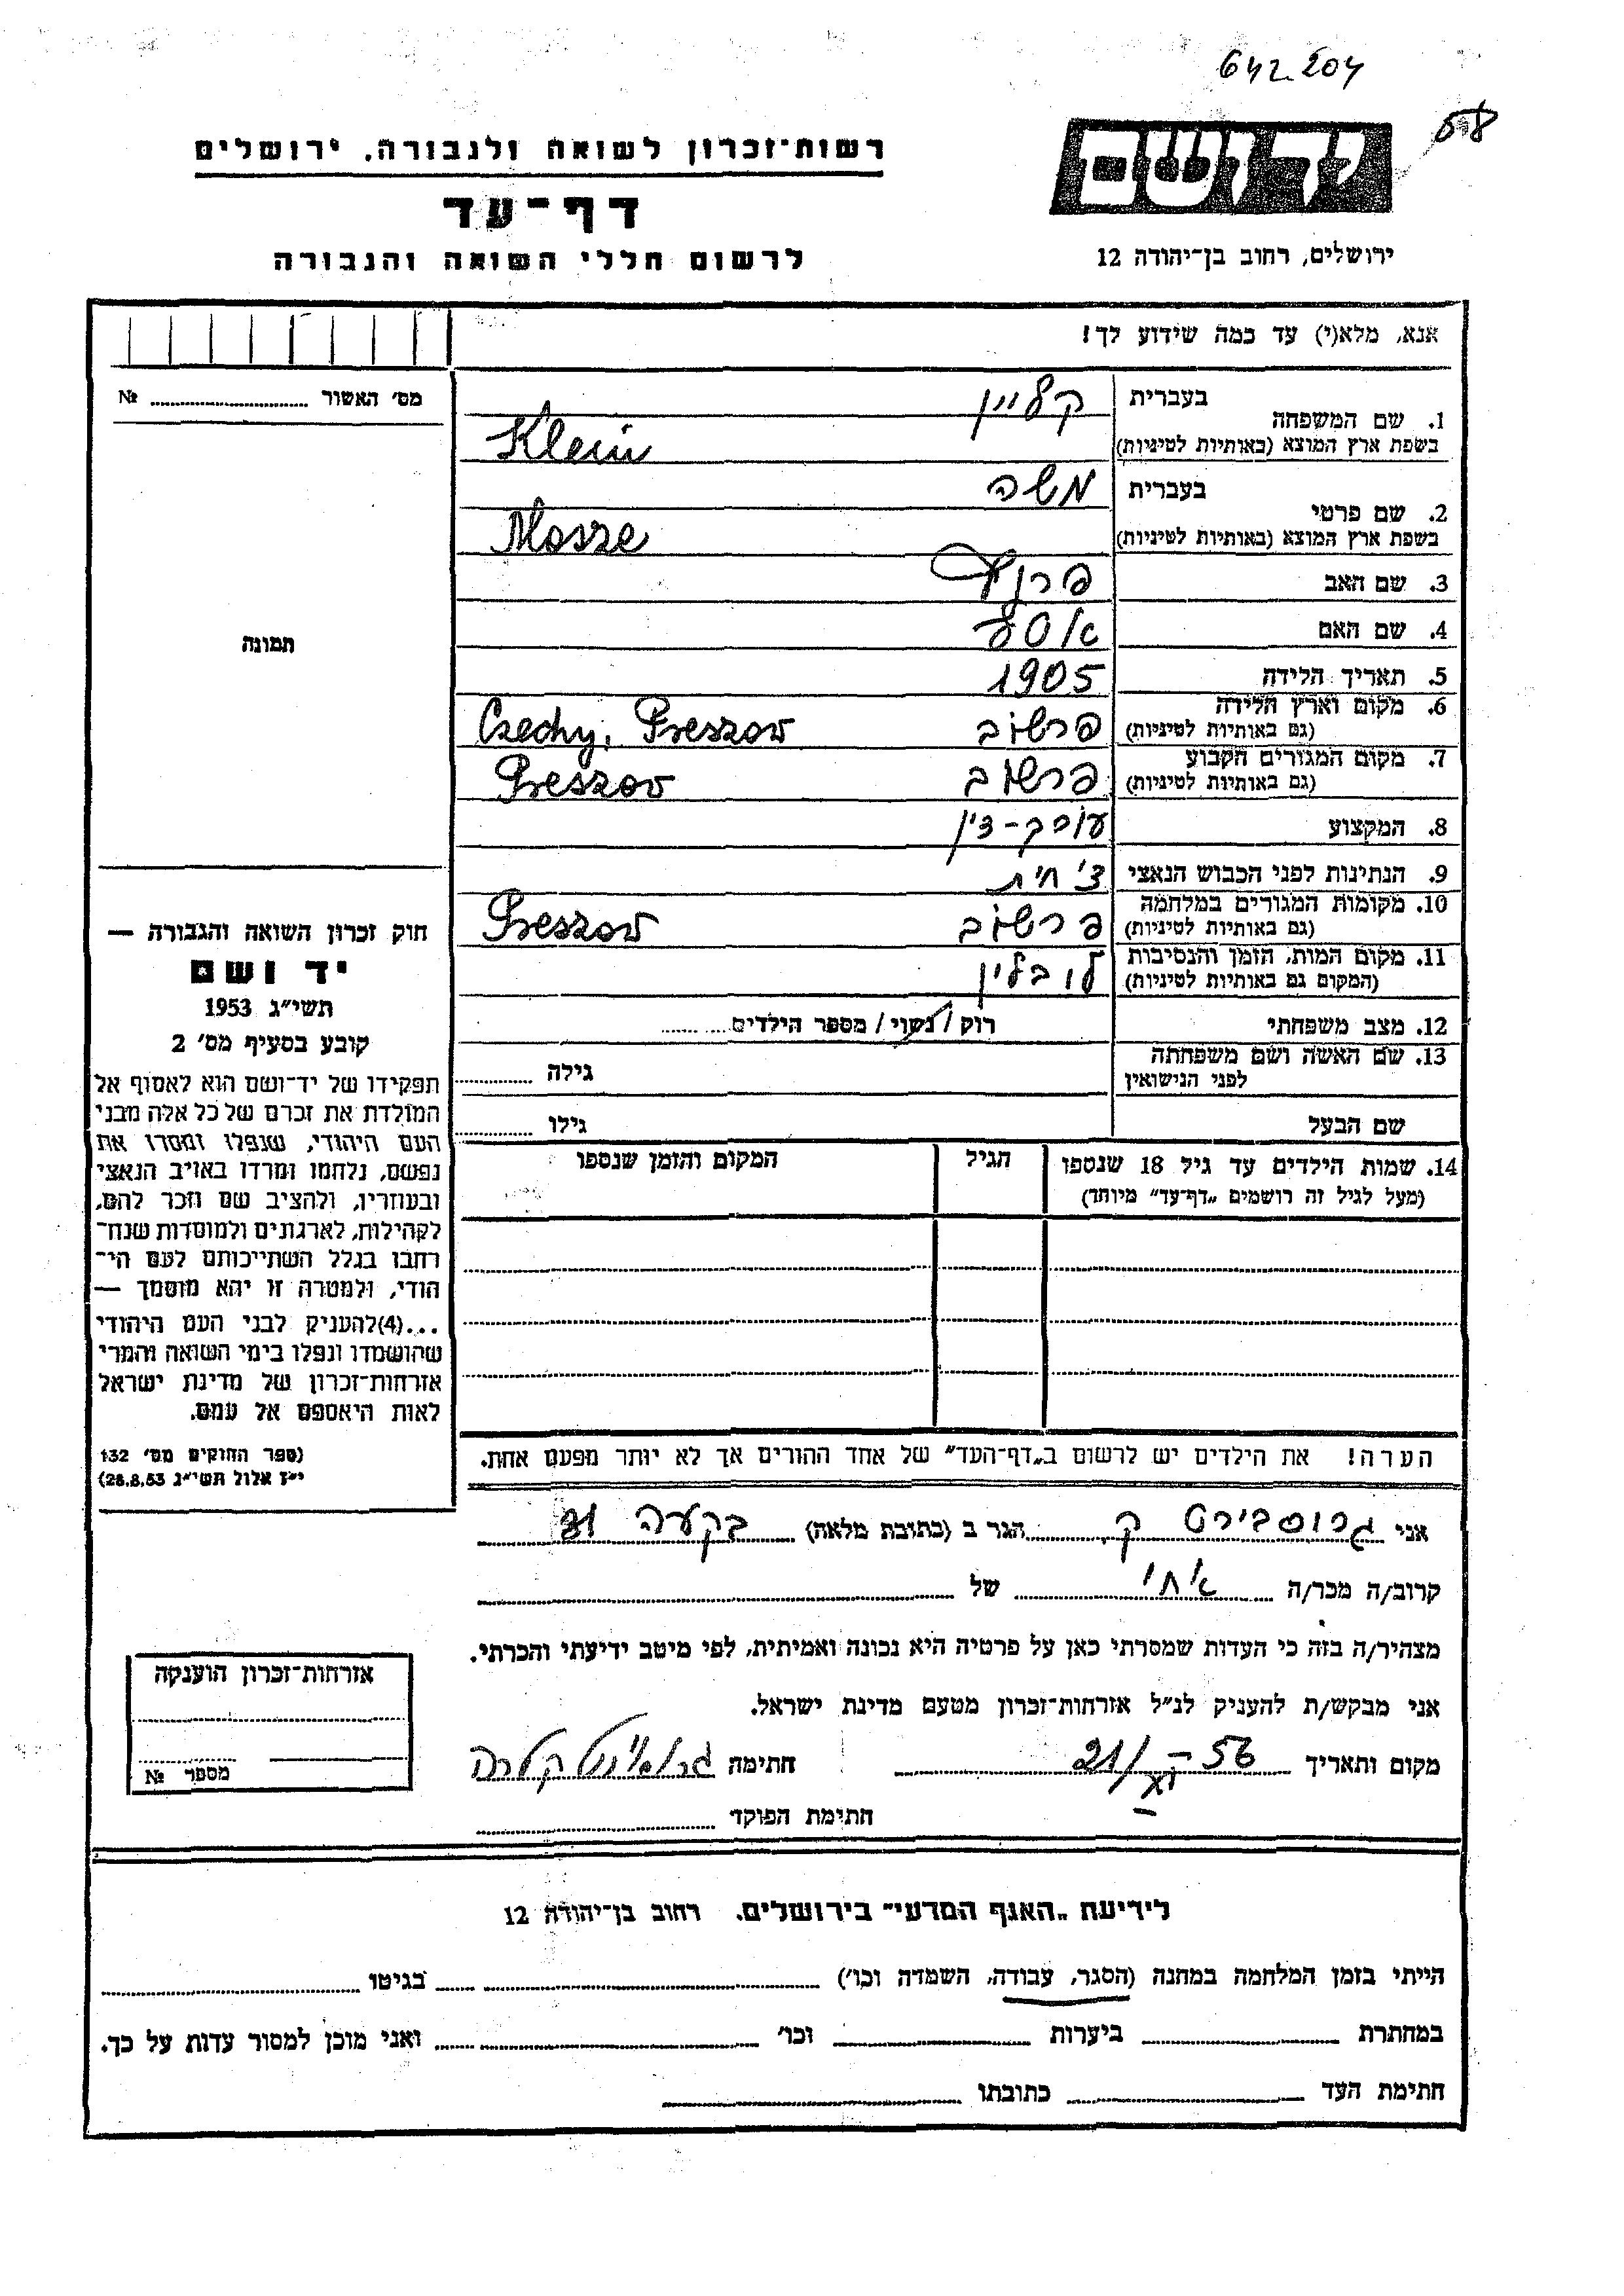 642.204
58
יד ושם
ירושלים, רחוב בן־יהודה 12
רשות־זכרון לשואה ולגבורה, ירושלים
דף־עד
לרשום חללי השואה והגבורה
אנא, מלא(י) עד כמה שידוע לך!
מס׳ האשור № 
1. שם המשפחה בעברית קליין
בשפת ארץ המוצא (באותיות לטיניות) Klein
2. שם פרטי בעברית משה
בשפת ארץ המוצא (באותיות לטיניות) Mosze
3. שם האב
4. שם האם
5. תאריך הלידה 1905
6. מקום וארץ הלידה (גם באותיות לטיניות) פרשוב Czechy, Preszov
7. מקום המגורים הקבוע (גם באותיות לטיניות) פרשוב Preszov
8. המקצוע עורך-דין
9. הנתינות לפני הכבוש הנאצי צ'חית
10. מקומות המגורים במלחמה (גם באותיות לטיניות) פרשוב Preszov
11. מקום המות, הזמן והנסיבות (המקום גם באותיות לטיניות) לובלין
12. מצב משפחתי רוק / נשוי / מספר הילדים
13. שם האשה ושם משפחתה לפני הנישואין גילה
שם הבעל גילו
14. שמות הילדים עד גיל 18 שנספו הגיל המקום והזמן שנספו
(מעל לגיל זה רושמים „דף־עד” מיוחד)
תמונה
חוק זכרון השואה והגבורה —
יד ושם
תשי״ג 1953
קובע בסעיף מס׳ 2
תפקידו של יד־ושם הוא לאסוף אל
המולדת את זכרם של כל אלה מבני
העם היהודי, שנפלו ומסרו את
נפשם, נלחמו ומרדו באויב הנאצי
ובעוזריו, ולהציב שם וזכר להם,
לקהילות, לארגונים ולמוסדות שנח־
רבו בגלל השתייכותם לעם הי־
הודי, ולמטרה זו יהא מוסמך —
...(4)להעניק לבני העם היהודי
שהושמדו ונפלו בימי השואה והמרי
אזרחות־זכרון של מדינת ישראל
לאות היאספם אל עמם.
(ספר החוקים מס׳ 132
י״ז אלול תשי״ג 28.8.53)
הערה! את הילדים יש לרשום ב„דף־העד” של אחד ההורים אך לא יותר מפעם אחת.
אני ק. הגר ב (כתובת מלאה) בקעה
קרוב/ה מכר/ה אחי של
מצהיר/ה בזה כי העדות שמסרתי כאן על פרטיה היא נכונה ואמיתית, לפי מיטב ידיעתי והכרתי.
אני מבקש/ת להעניק לנ״ל אזרחות־זכרון מטעם מדינת ישראל.
מקום ותאריך 21/XI - 56 חתימה קלרה
חתימת הפוקד
אזרחות־זכרון הוענקה
מספר №
לידיעת „האגף המדעי” בירושלים, רחוב בן־יהודה 12
הייתי בזמן המלחמה במחנה (הסגר, עבודה, השמדה וכו׳) בגיטו
במחתרת ביערות וכו׳ ואני מוכן למסור עדות על כך.
חתימת העד כתובתו